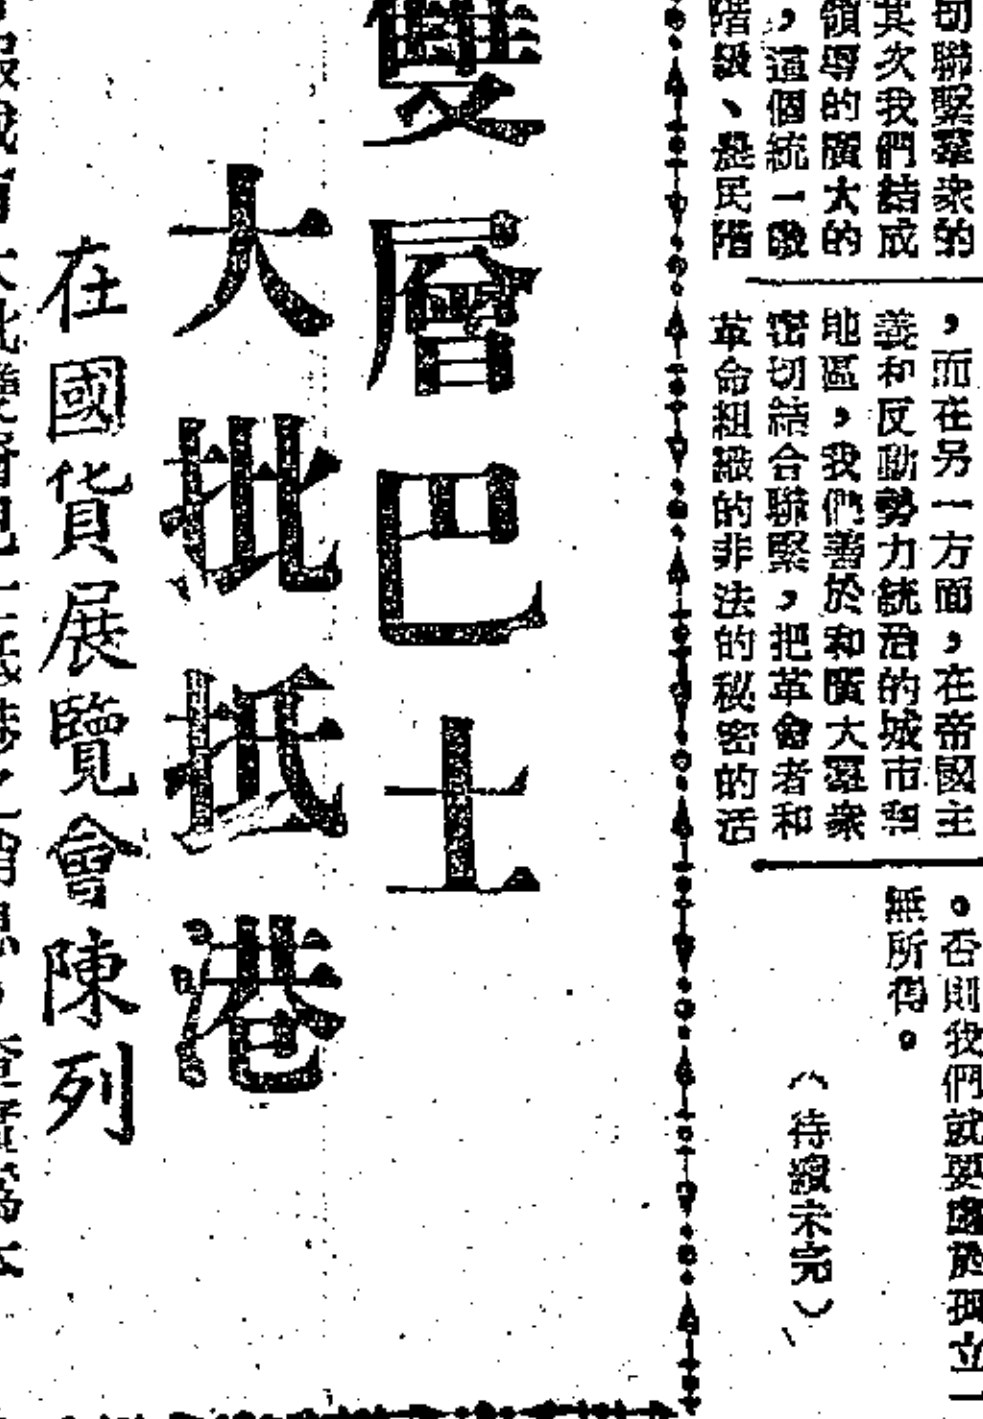 切聯繫羣衆的
其次我們結成
領導的廣大的
，這個統一戰
階級、是民階
，而在另一方面，在帝國主
義和反動勢力統治的城市和
地區，我們善於和廣大羣衆
密切結合聯緊，把革命者和
革命組織的非法的秘密的活
。否則我們就要處於孤立一
無所得。
（待續未完）
雙層巴士
大批抵港
在國貨展覽會陳列